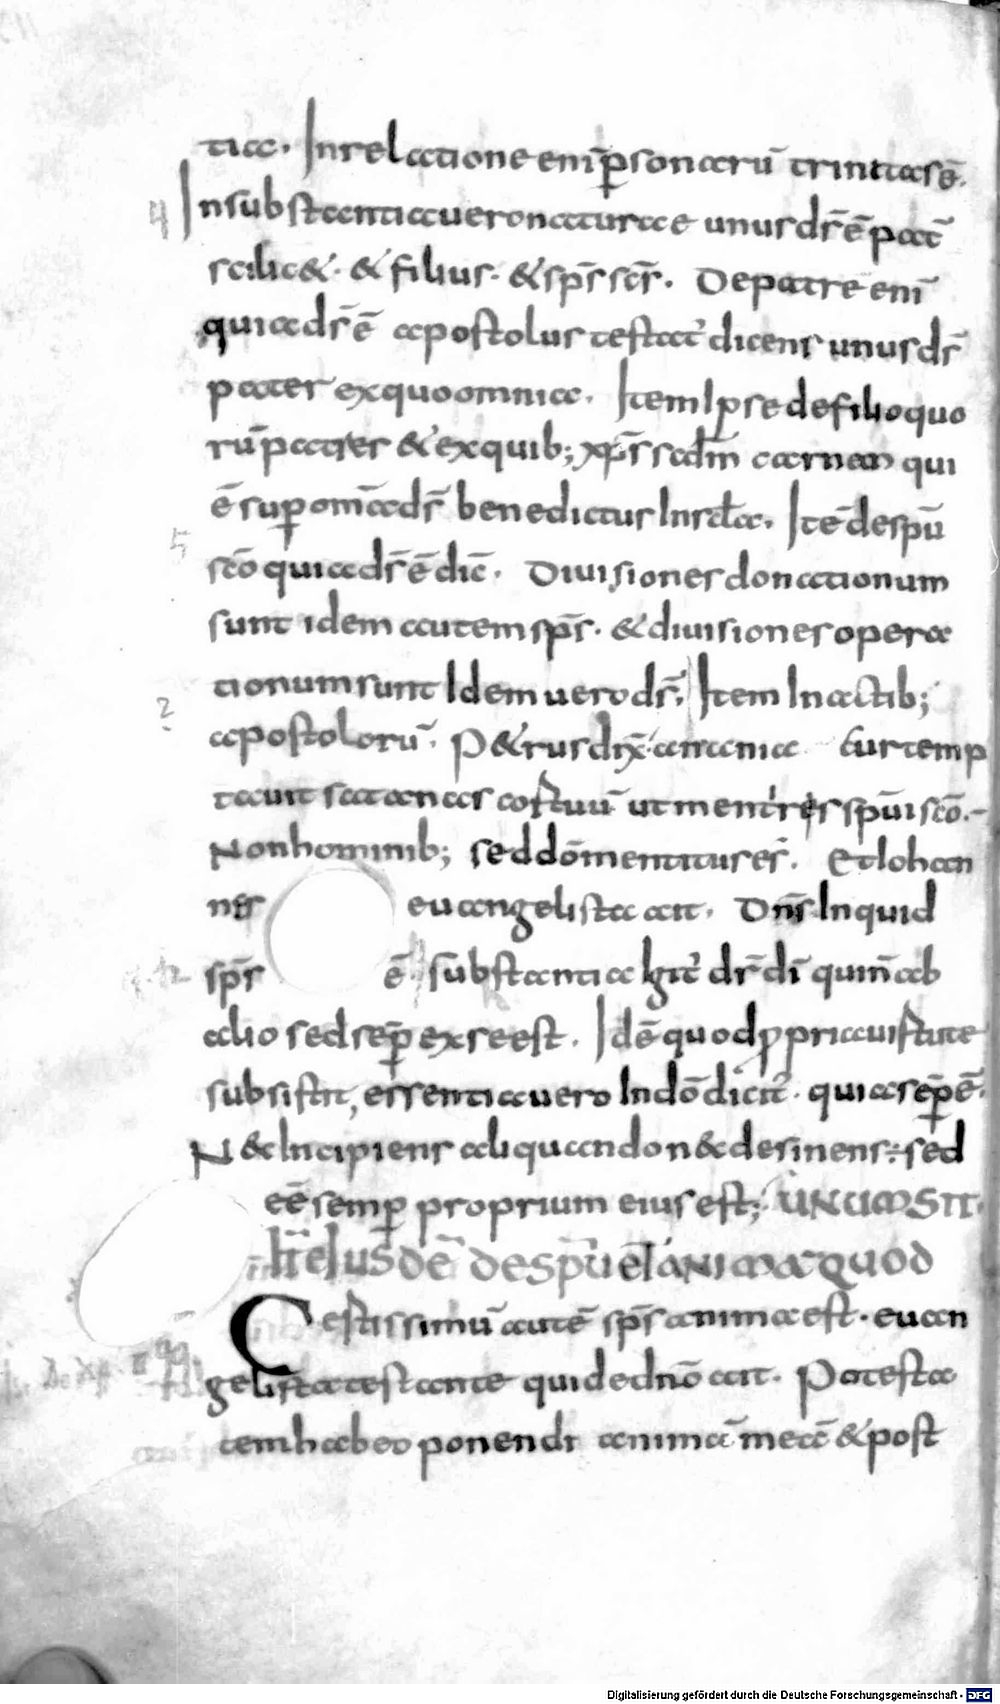 tia. Inrelatione eni̅ p̲sonaru̅ trinitas e̅.
Insubstantia uero naturae unus d̅s e̅ pat̅
scilic&. & filius. & sp̅s sc̅s. Depatre eni̅
quia d̅s e̅ apostolus testat᾽ dicens unus d̅s
pater exquoomnia. Item Ipse defilio quo
ru̅ patres & exquib; xp̅s sedm̅ carnem qui
e̅ sup̲ om̅a d̅s benedictus Insc̅la. Ite̅ despu̅
sc̅o quia d̅s e̅ dic̅. Diuisiones donationum
sunt idem autem sp̅s. & diuisiones opera
tionum sunt Idem uero d̅s. Item Inactib;
apostoloru̅. P&rus dix̅ ananiae Cur temp
tauit satanas cor tuu̅ ut mentireris spu̅i sc̅o.
Nonhominib; sed do̅ mentitus es. Et Iohan
nes euangelista ait. Dn̅s Inquid
sp̅s e̅ substantia Igit᾽ dr̅ di̅ quin̅ ab
alio sed sep̲ exseest. Ide̅ quod ppria uirtute
subsistit, essentia uero Indo̅ dicit᾽. quia sep̲ e̅.
N&Incipiens aliquando n& desinens; sed
ee̅ semp̲ proprium eius est; UNUM SIT
It̅ eIusde̅ despu̅ &ANIMA QUOD
Certissimu̅ aute̅ sp̅s anima est. euan
gelista testante quidedno̅ ait. Potesta
tem habeo ponendi anima̅ mea̅ & post
Digitalisierung gefördert durch die Deutsche Forschungsgemeinschaft - DFG